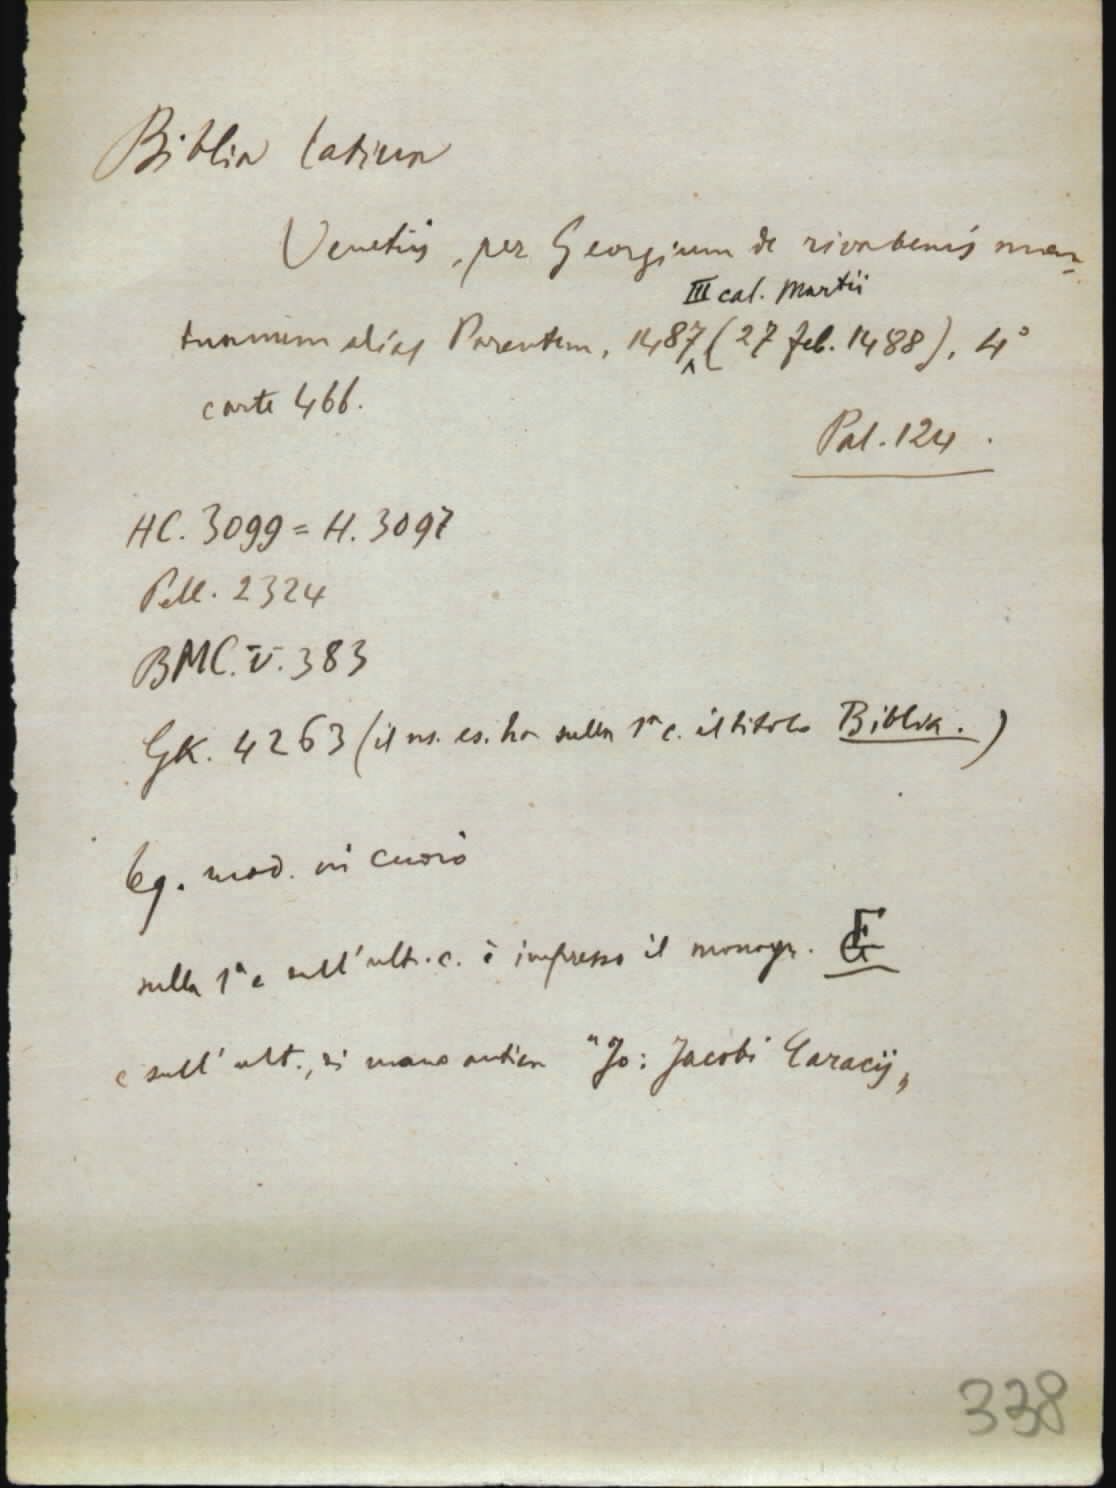 Biblia latina
Venetiis, per Georgium de rivabenis man-
III cal. Martii
tuanum alias Parentem, 1487 ^ (27 feb. 1488), 4°
carte 466.
Pal. 124.
HC. 3099 = H. 3097
Pell. 2324
BMC. V. 383
GK. 4263 (il ns. es. ha sulla 1ª c. il titolo Biblia.)
leg. mod. in cuoio
sulla 1ª e sull'ult. c. è impresso il monogr.
e sull'ult., di mano antica "Jo: Jacobi Caracij„
338